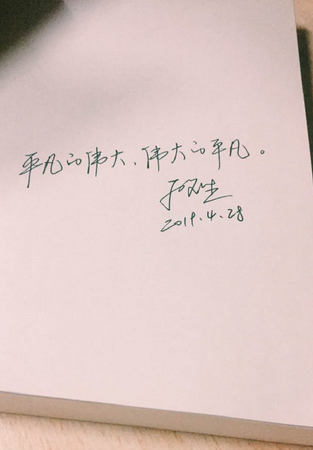 平凡的伟大，伟大的平凡。
2019.4.28